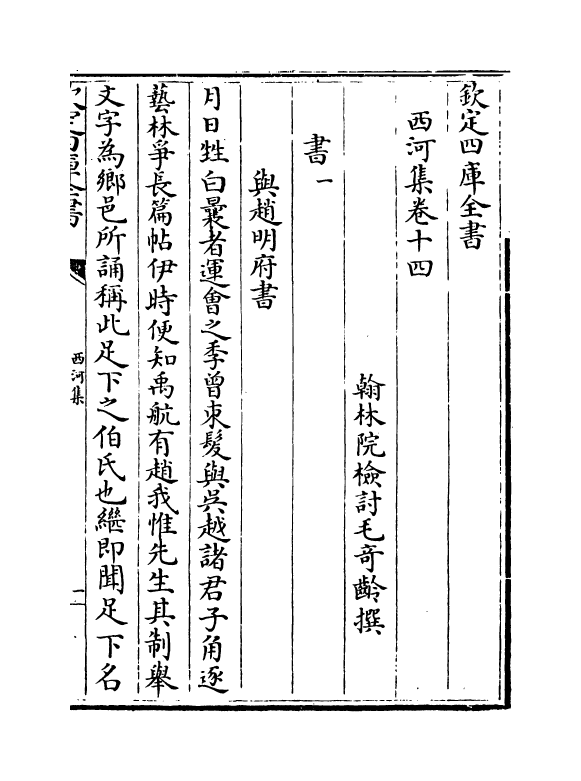 欽定四庫全書
西河集卷十四
翰林院檢討毛竒齡撰
書一
與趙明府書
月日甡白曩者運會之季曾束髮與吳越諸君子角逐
藝林爭長篇帖伊時便知禹航有趙我惟先生其制舉
文字為鄉邑所誦稱此足下之伯氏也繼即聞足下名
西河集
一